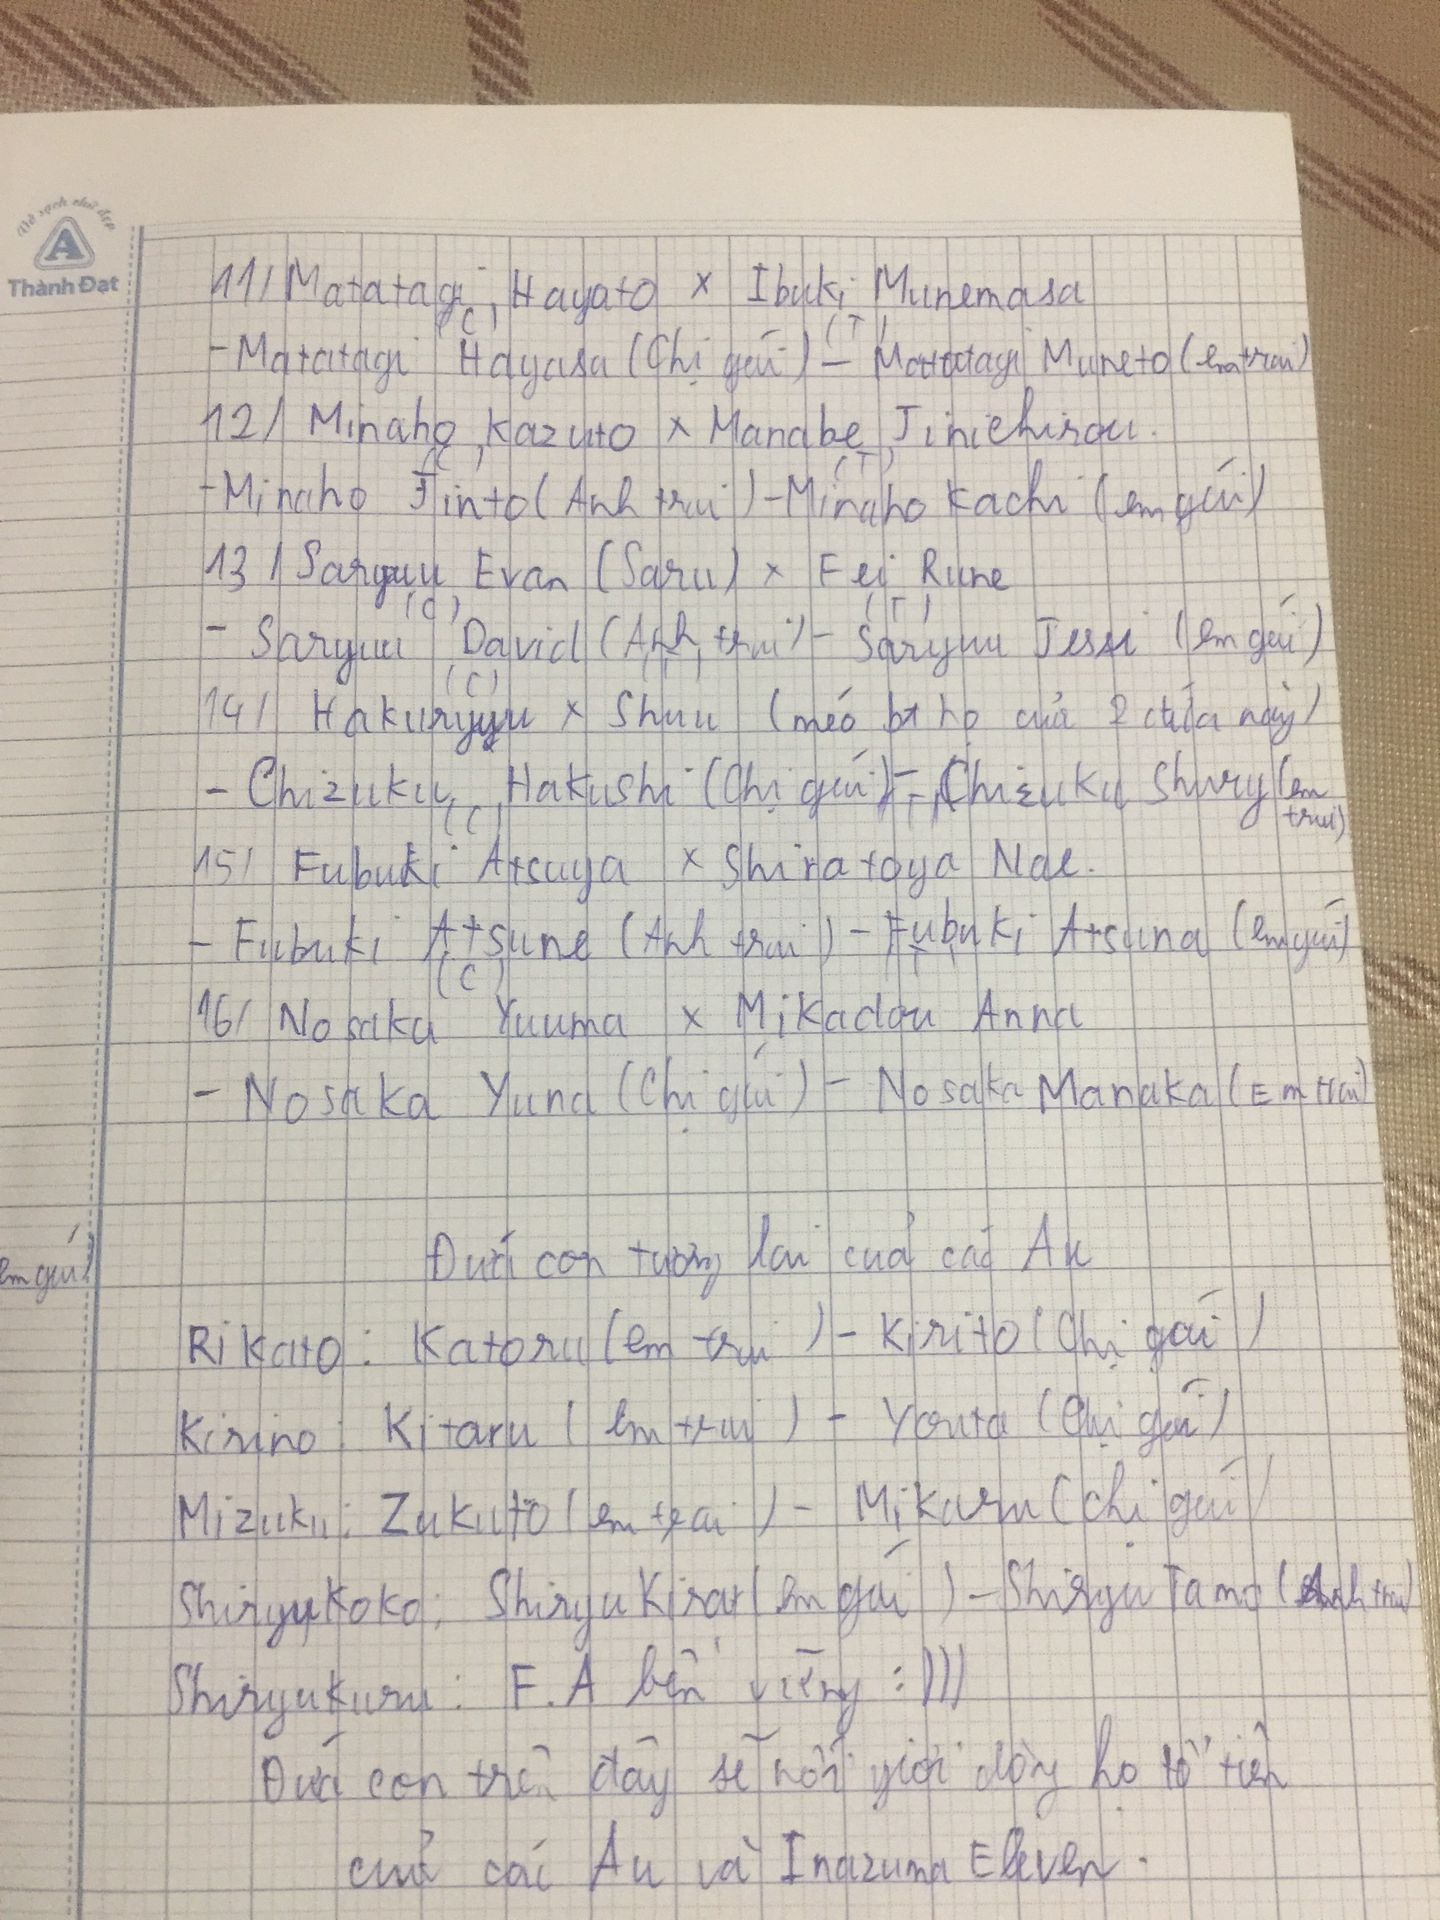 Vở sạch chữ đẹp
A
Thành Đạt
11/ Matatagi Hayato x Ibuki Munemasa
(C) (T)
- Matatagi Hayasa (Chị gái) - Matatagi Muneto (em trai)
12/ Minaho Kazuto x Manabe Jinichirou.
(C) (T)
- Minaho Jinto (Anh trai) - Minaho Kachi (em gái)
13/ Saryuu Evan (Saru) x Fei Rune
(C) (T)
- Saryuu David (Anh trai) - Saryuu Jessi (em gái)
(C)
14/ Hakuryuu x Shuu (méo bt họ của 2 đứa này)
- Chizuku Hakushi (Chị gái) - Chizuku Shury (em trai)
(C)
15/ Fubuki Atsuya x Shiratoya Nae.
- Fubuki Atsune (Anh trai) - Fubuki Atsuna (em gái)
(C)
16/ Nosaka Yuuma x Mikadou Anna
- Nosaka Yuna (Chị gái) - Nosaka Manaka (Em trai)
em gái)
Đứa con tương lai của các Au
Rikato: Katoru (em trai) - Kirito (Chị gái)
Kirino: Kitaru (em trai) - Youta (Chị gái)
Mizuku: Zukuto (em trai) - Mikaru (chị gái)
Shiryukoko: Shiryu Kirat (em gái) - Shiryu Tamo (Anh trai)
Shiryukuru: F.A bền vững :)))
Đứa con trên đây sẽ nối giỏi dòng họ tổ tiên
của các Au và Inazuma Eleven.